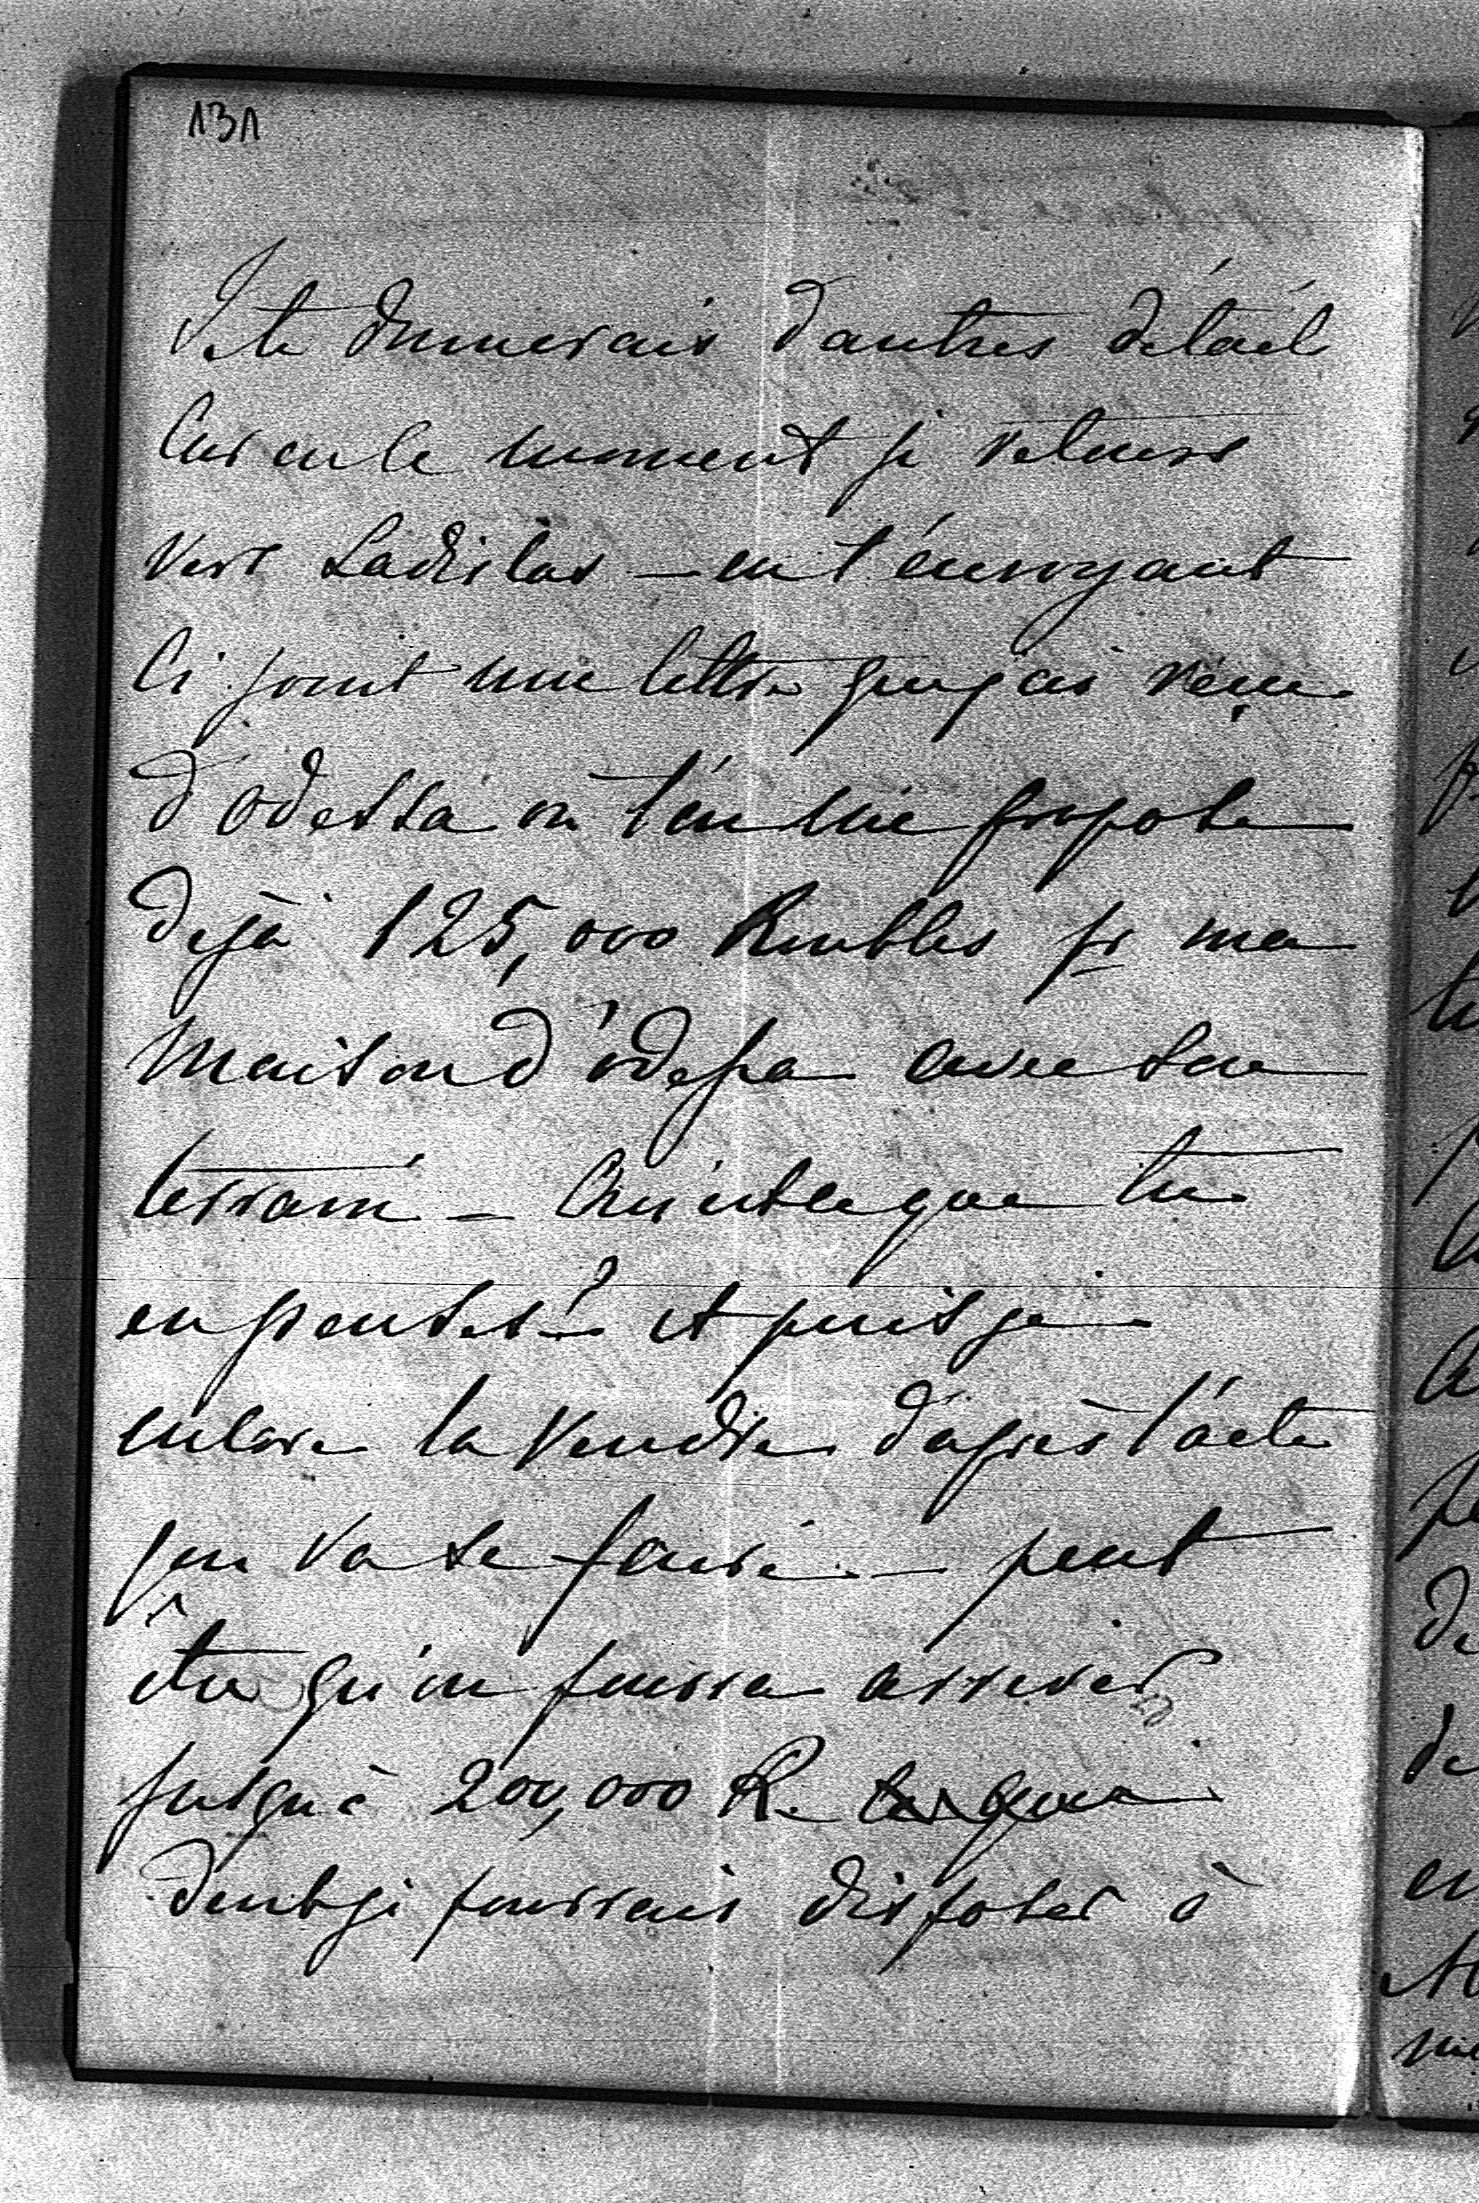 131
Je te donnerais d'autres détails
Car en ce moment je retourne
vers Ladislas – en t'envoyant
Ci joint une lettre que j'ai réçue
d'odessa on me propose
dejà 125,000 Roubles pr ma
maison d'odessa avec son
terrain – Qu'est ce que tu
en penses? et puis je
encore la vendre d'après l'acte
qui va se faire – peut
être qu'on pourra arriver
jusqu'à 200,000 R.
dont je pourrais disposer à